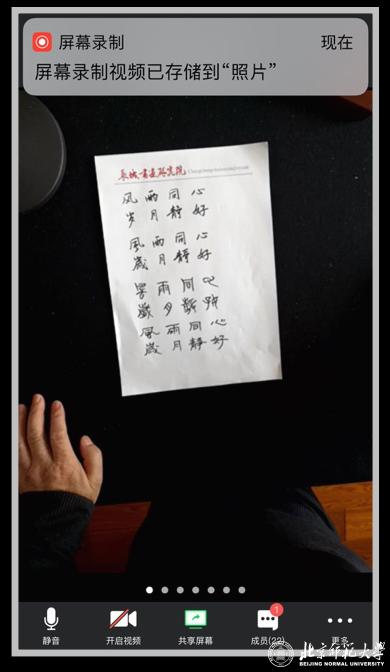 屏幕录制
现在
屏幕录制视频已存储到“照片”
长城书画研究院
风雨同心
岁月静好
風雨同心
歲月静好
風雨同心
歲月靜好
静音
开启视频
共享屏幕
1
成员(22)
更多
北京师范大学
BEIJING NORMAL UNIVERSITY